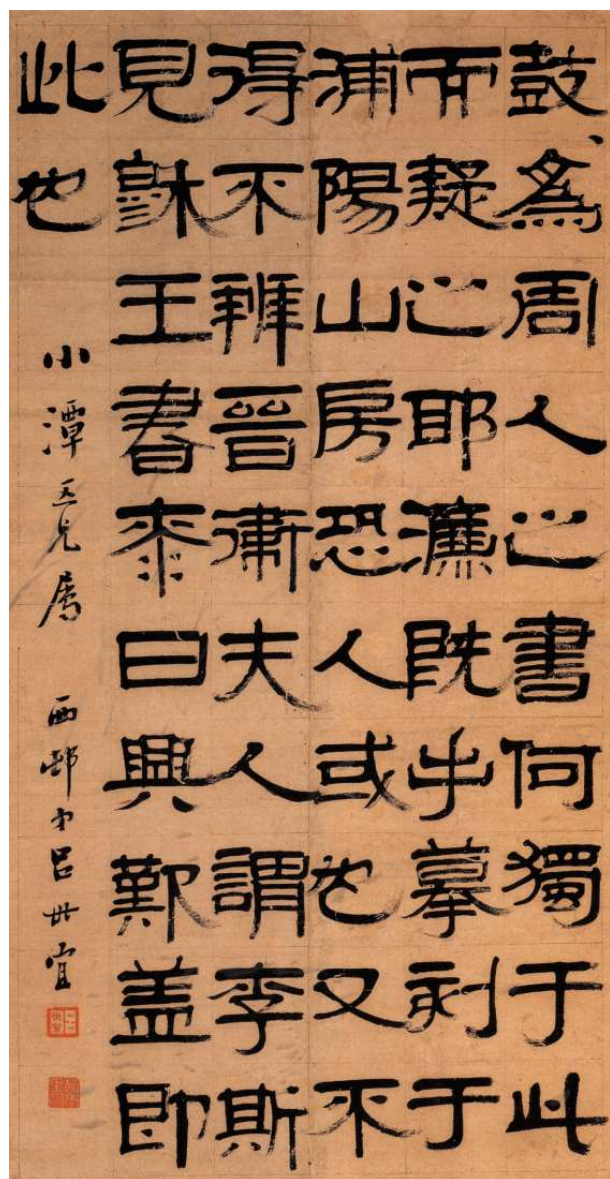 鼓為周人之書何獨于此
而疑之耶濂既手摹刻于
浦陽山房恐人或也又不
得不辨晉衛夫人謂李斯
見穆王書桼日興歎盖即
此也
小潭五兄属 西邨弟呂世宜